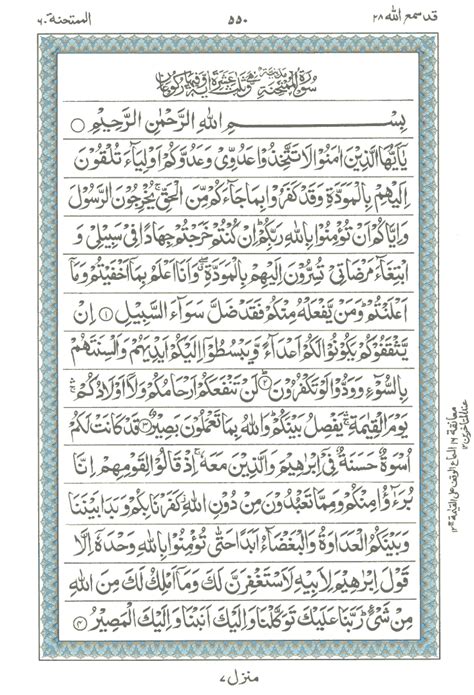 قد سمع الله ۲۸
۵۵۰
الممتحنة ۶۰
سُوۡرَةُ الۡمُمۡتَحِنَةِ مَدَنِیَّةٌ وَّهِیَ ثَلٰثَ عَشَرَةَ اٰیَةً وَّفِیۡهَا رُکُوۡعَانِ
بِسۡمِ اللهِ الرَّحۡمٰنِ الرَّحِیۡمِ
یٰۤاَیُّهَا الَّذِیۡنَ اٰمَنُوۡا لَا تَتَّخِذُوۡا عَدُوِّیۡ وَعَدُوَّکُمۡ اَوۡلِیَآءَ تُلۡقُوۡنَ
اِلَیۡهِمۡ بِالۡمَوَدَّةِ وَقَدۡ کَفَرُوۡا بِمَا جَآءَکُمۡ مِّنَ الۡحَقِّ ۚ یُخۡرِجُوۡنَ الرَّسُوۡلَ
وَاِیَّاکُمۡ اَنۡ تُؤۡمِنُوۡا بِاللهِ رَبِّکُمۡ ؕ اِنۡ کُنۡتُمۡ خَرَجۡتُمۡ جِهَادًا فِیۡ سَبِیۡلِیۡ وَ
ابۡتِغَآءَ مَرۡضَاتِیۡ تُسِرُّوۡنَ اِلَیۡهِمۡ بِالۡمَوَدَّةِ ۖ وَاَنَا اَعۡلَمُ بِمَاۤ اَخۡفَیۡتُمۡ وَمَاۤ
اَعۡلَنۡتُمۡ ؕ وَمَنۡ یَّفۡعَلۡهُ مِنۡکُمۡ فَقَدۡ ضَلَّ سَوَآءَ السَّبِیۡلِ ۱ اِنۡ
یَّثۡقَفُوۡکُمۡ یَکُوۡنُوۡا لَکُمۡ اَعۡدَآءً وَّیَبۡسُطُوۡۤا اِلَیۡکُمۡ اَیۡدِیَهُمۡ وَاَلۡسِنَتَهُمۡ
بِالسُّوۡٓءِ وَوَدُّوۡا لَوۡ تَکۡفُرُوۡنَ ۲ لَنۡ تَنۡفَعَکُمۡ اَرۡحَامُکُمۡ وَلَاۤ اَوۡلَادُکُمۡ
یَوۡمَ الۡقِیٰمَةِ ۚ یَفۡصِلُ بَیۡنَکُمۡ ؕ وَاللهُ بِمَا تَعۡمَلُوۡنَ بَصِیۡرٌ ۳ قَدۡ کَانَتۡ لَکُمۡ
اُسۡوَةٌ حَسَنَةٌ فِیۡۤ اِبۡرٰهِیۡمَ وَالَّذِیۡنَ مَعَهٗ ۚ اِذۡ قَالُوۡا لِقَوۡمِهِمۡ اِنَّا
بُرَءٰٓؤُا مِنۡکُمۡ وَمِمَّا تَعۡبُدُوۡنَ مِنۡ دُوۡنِ اللهِ کَفَرۡنَا بِکُمۡ وَبَدَا بَیۡنَنَا
وَبَیۡنَکُمُ الۡعَدَاوَةُ وَالۡبَغۡضَآءُ اَبَدًا حَتّٰی تُؤۡمِنُوۡا بِاللهِ وَحۡدَهٗۤ اِلَّا
قَوۡلَ اِبۡرٰهِیۡمَ لِاَبِیۡهِ لَاَسۡتَغۡفِرَنَّ لَکَ وَمَاۤ اَمۡلِکُ لَکَ مِنَ اللهِ
مِنۡ شَیۡءٍ ؕ رَبَّنَا عَلَیۡکَ تَوَکَّلۡنَا وَاِلَیۡکَ اَنَبۡنَا وَاِلَیۡکَ الۡمَصِیۡرُ ۴
منزل ۷